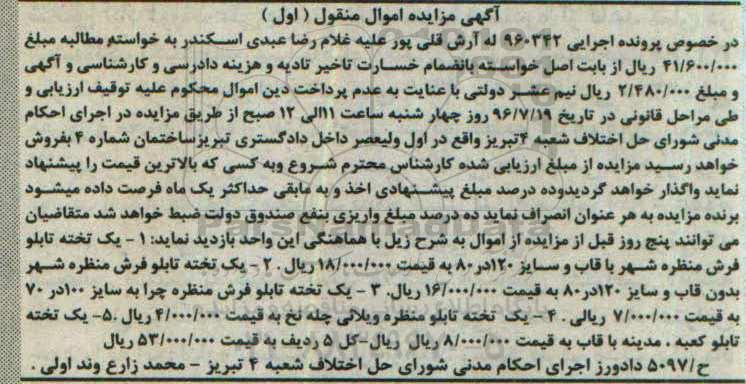 آگهی مزایده اموال منقول ( اول )
در خصوص پرونده اجرایی ۹۶۰۳۴۲ له آرش قلی پور علیه غلام رضا عبدی اسکندر به خواسته مطالبه مبلغ
۴۱/۶۰۰/۰۰۰ ریال از بابت اصل خواسته بانضمام خسارت تاخیر تادیه و هزینه دادرسی و کارشناسی و آگهی
و مبلغ ۲/۴۸۰/۰۰۰ ریال نیم عشر دولتی با عنایت به عدم پرداخت دین اموال محکوم علیه توقیف ارزیابی و
طی مراحل قانونی در تاریخ ۹۶/۷/۱۹ روز چهار شنبه ساعت ۱۱الی ۱۲ صبح از طریق مزایده در اجرای احکام
مدنی شورای حل اختلاف شعبه ۴تبریز واقع در اول ولیعصر داخل دادگستری تبریزساختمان شماره ۴ بفروش
خواهد رسید مزایده از مبلغ ارزیابی شده کارشناس محترم شروع وبه کسی که بالاترین قیمت را پیشنهاد
نماید واگذار خواهد گردیدوده درصد مبلغ پیشنهادی اخذ و به مابقی حداکثر یک ماه فرصت داده میشود
برنده مزایده به هر عنوان انصراف نماید ده درصد مبلغ واریزی بنفع صندوق دولت ضبط خواهد شد متقاضیان
می توانند پنج روز قبل از مزایده از اموال به شرح زیل با هماهنگی این واحد بازدید نماید: ۱ - یک تخته تابلو
فرش منظره شهر با قاب و سایز ۱۲۰در۸۰ به قیمت ۱۸/۰۰۰/۰۰۰ریال . ۲ - یک تخته تابلو فرش منظره شهر
بدون قاب و سایز ۱۲۰در۸۰ به قیمت ۱۶/۰۰۰/۰۰۰ ریال. ۳ - یک تخته تابلو فرش منظره چرا به سایز ۱۰۰در ۷۰
به قیمت ۷/۰۰۰/۰۰۰ ریالی . ۴ - یک تخته تابلو منظره ویلائی چله نخ به قیمت ۴/۰۰۰/۰۰۰ ریال .۵- یک تخته
تابلو کعبه . مدینه با قاب به قیمت ۸/۰۰۰/۰۰۰ ریال ریال-کل ۵ ردیف به قیمت ۵۳/۰۰۰/۰۰۰ ریال
ح/۵۰۹۷ دادورز اجرای احکام مدنی شورای حل اختلاف شعبه ۴ تبریز - محمد زارع وند اولی .